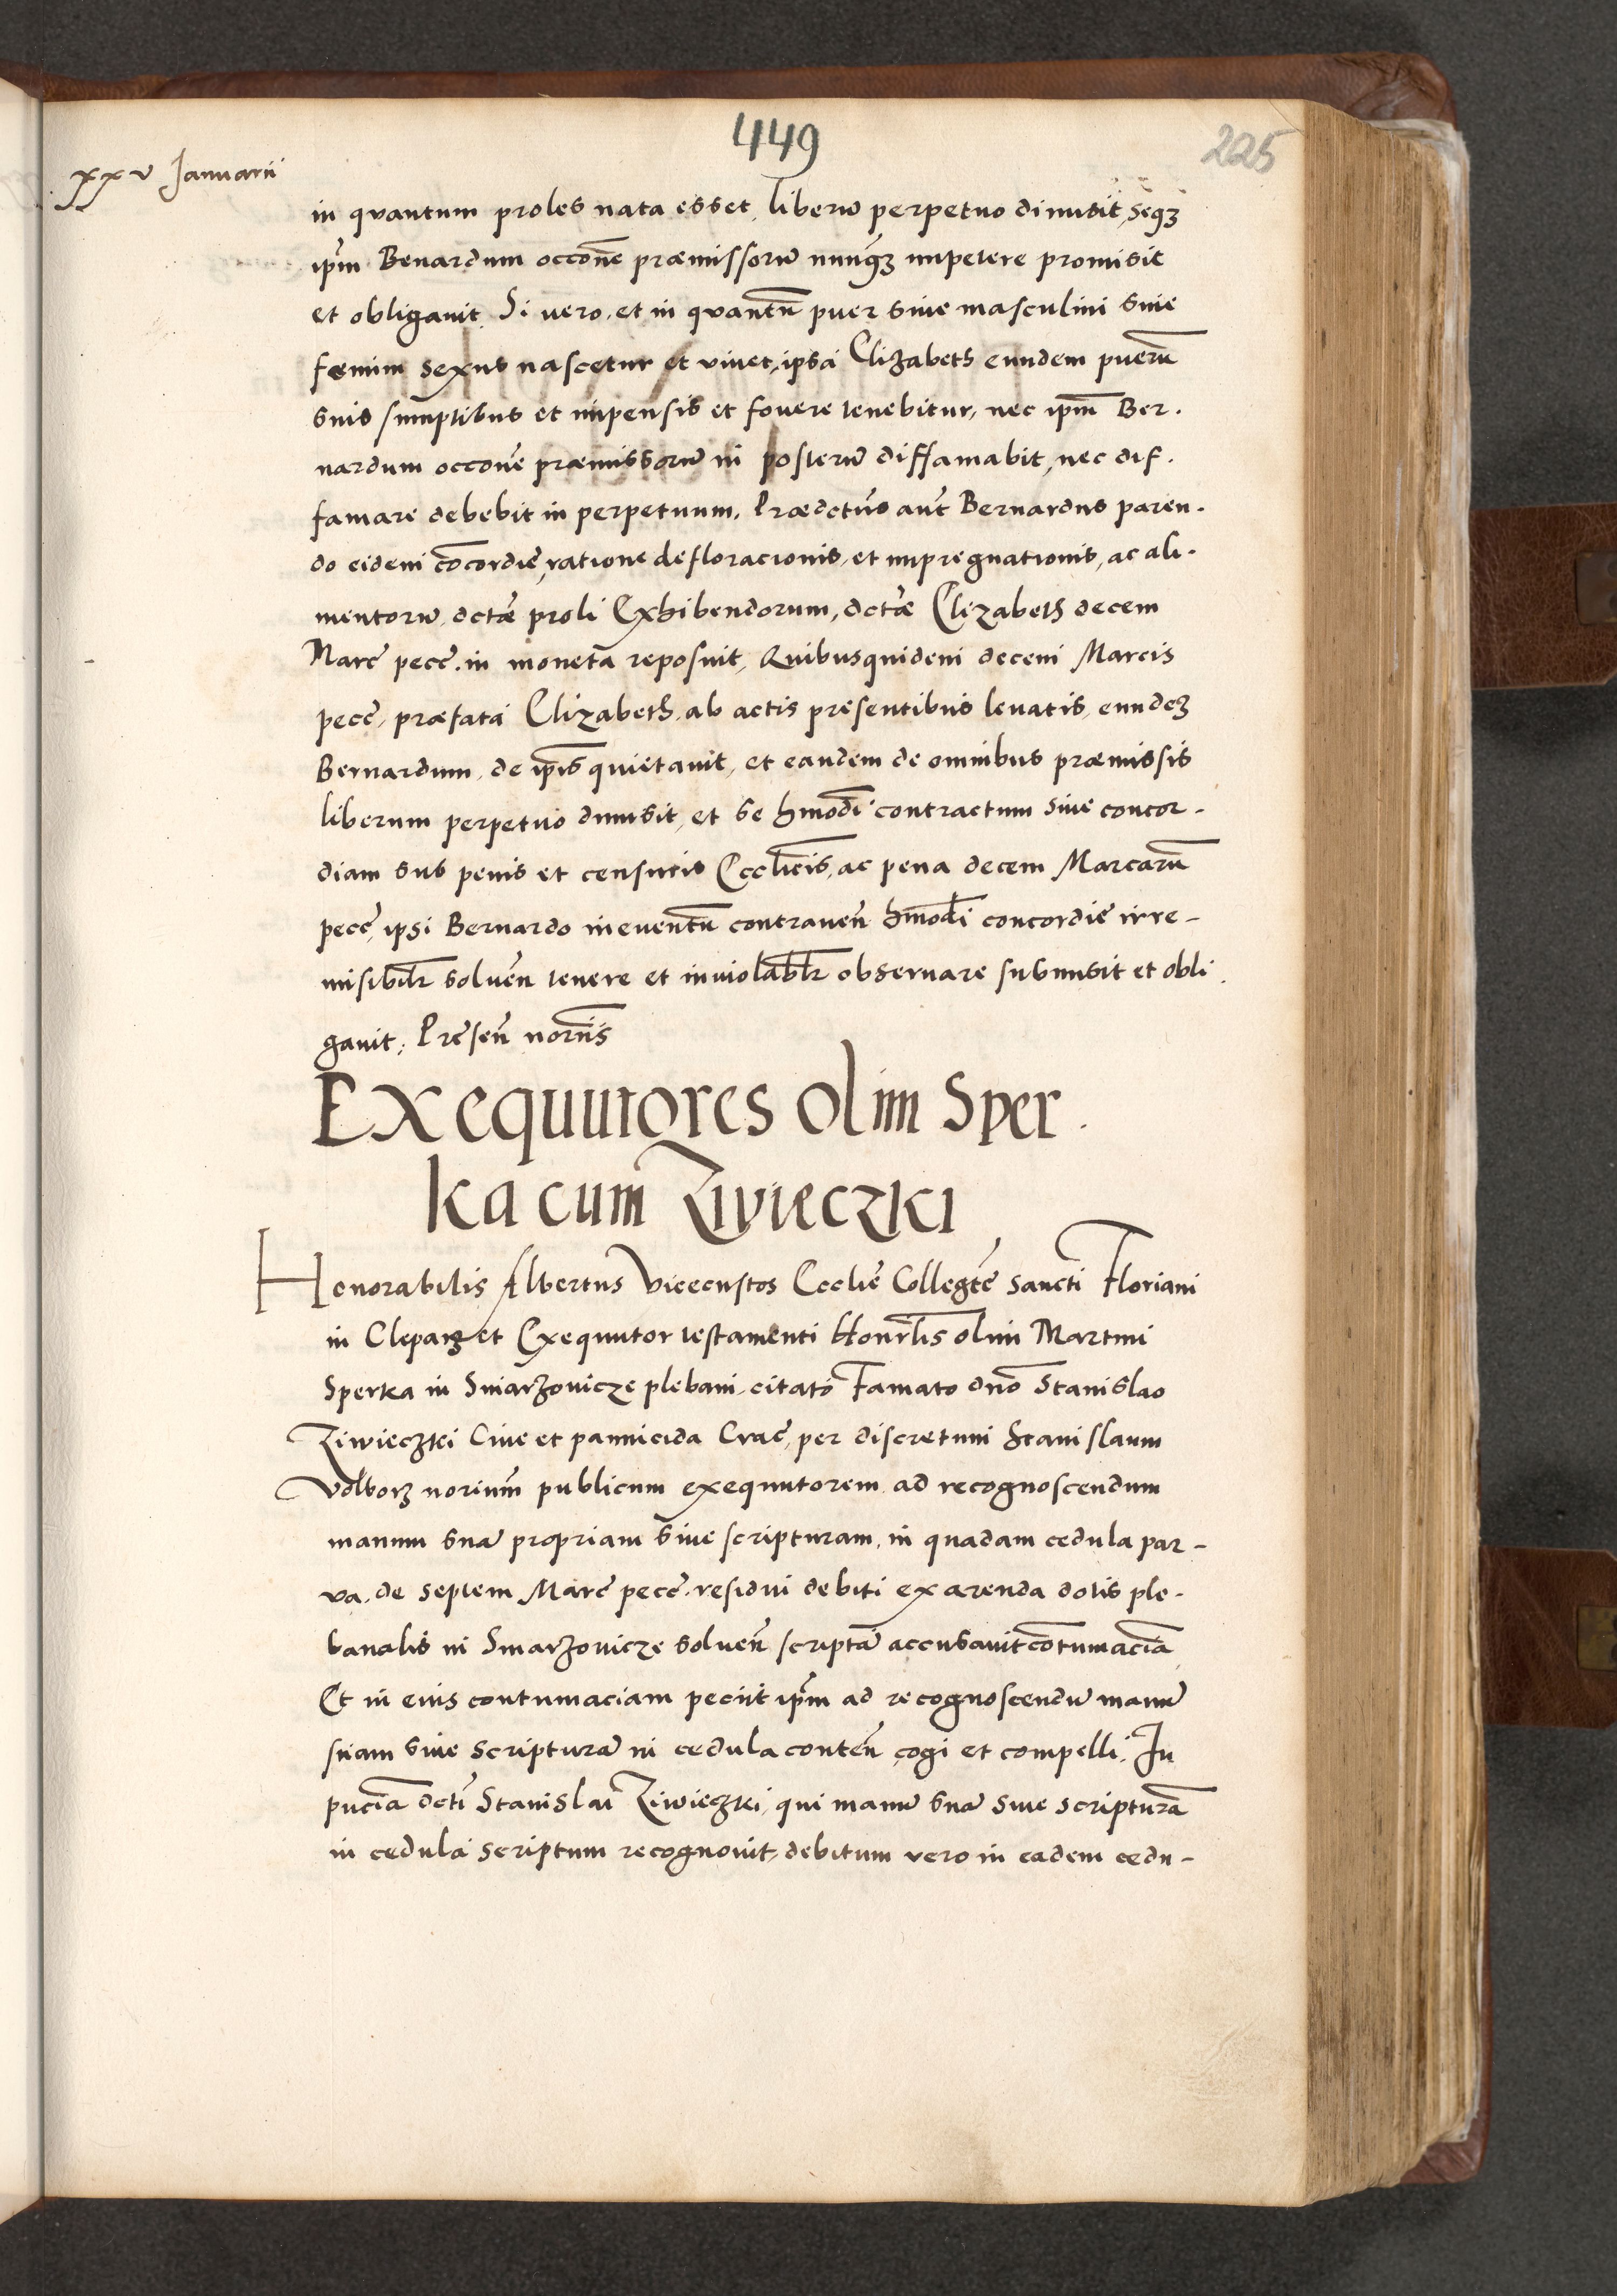 449
225
xxv Januarii
in quantum proles nata esset, liberũ perpetuo dimisit, seqꝫ
ip̃m Benardum occone præmissorũ nunqꝫ impetere promisit
et obligauit. Si uero, et in quantũ puer siue masculini siue
fœmim sexus nascetur et viuet, ipsa Elizabeth eundem puerũ
suis sumptibus et impensis et fouere tenebitur, nec ip̃m Ber.
nardum occone præmissorũ in posterũ diffamabit, nec dif.
famare debebit in perpetuum. Prædctũs aut̃ Bernardus paren.
do eidem cõcordie, ratione defloracionis, et impregnationis, ac ali.
mentorũ, dctæ proli Exhibendorum, dctæ Elizabeth decem
Marc̃ pecc̃. in moneta reposuit, Quibusquidem decem Marcis
pecc̃, præfata Elizabeth, ab actis presentibus leuatis, eundeꝫ
Bernardum, de ip̃is quietauit, et eandem de omnibus præmissis
liberum perpetuo dimisit, et se hmodi contractum siue concor.
diam sub penis et censuris Eccl̃icis, ac pena decem Marcarũ
pecc̃, ipsi Bernardo in euentũ contrauen̄ hmodi concordie irre-
misibilr̃ soluen̄ tenere et inuiolablr̃ obseruare submisit et obli.
gauit; Presen̄ norĩis
Exequutores olim Sper.
ka cum Ziwieczki
Honorabilis Albertus Vicecustos Eccliẽ Collegtẽ Sancti Floriani
in Clepardꝫ et Exequutor testamenti Honrl̃is olim Martini
Sperka in Smarzovicze plebani, citato Famato dnõ Stanislao
Ziwieczki Ciue et pannicida Crac̃, per discretum Stanislaum
Vdworꝫ noriũm publicum exequutorem ad recognoscendum
manum suã propriam siue scripturam, in quadam cedula par-
va, de septem Marc̃ pecc̃. residui debiti ex arenda dotis ple-
banalis in Smarzovicze soluen̄ scriptã accusauit contumaciã
Et in eius contumaciam peciit ip̃m ad recognoscendũ manũ
suam siue scripturã in cedula conten̄ cogi et compelli. In
pn̄ciã dcti Stanislai Ziwieczki, qui manũ suã siue scripturã
in cedula scriptum recognouit, debitum vero in eadem cedu-